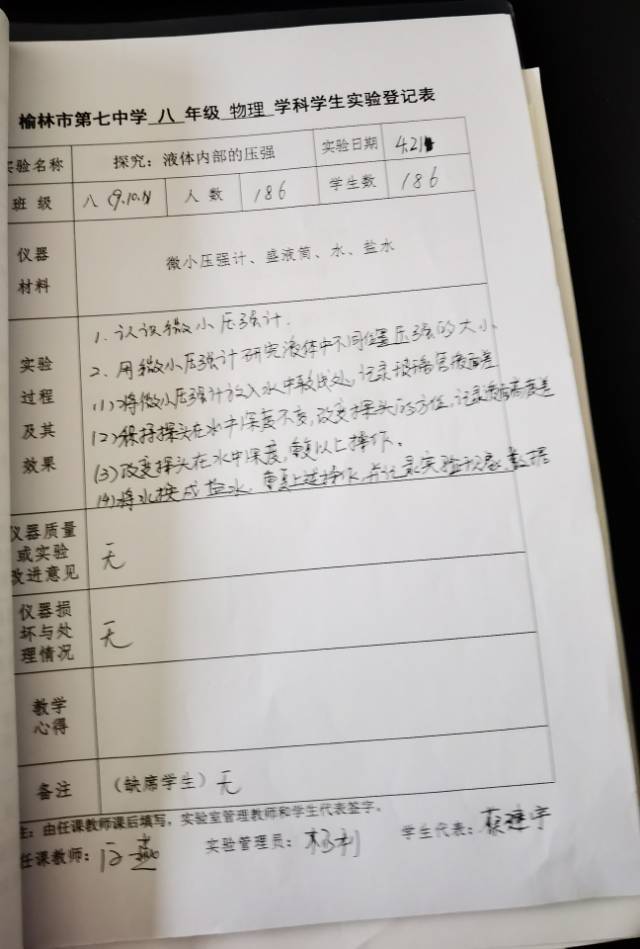 榆林市第七中学 八 年级 物理 学科学生实验登记表
实验名称 探究：液体内部的压强 实验日期 4.21
班级 八(9.10.11) 人数 186 学生数 186
仪器
材料
微小压强计、盛液筒、水、盐水
实验
过程
及其
效果
1. 认识微小压强计.
2. 用微小压强计研究液体中不同位置压强的大小
(1)将微小压强计放入水中较浅处,记录 液面差
(2)保持探头在水中深度不变,改变探头的方位,记录液面高度差
(3)改变探头在水中深度,重复以上操作.
(4)将水换成盐水,重复上述操作,并记录实验现象、数据
仪器质量
或实验
改进意见
无
仪器损
坏与处
理情况
无
教学
心得
备注 (缺席学生) 无
注：由任课教师课后填写，实验室管理教师和学生代表签字。
任课教师： 实验管理员：杨利 学生代表：